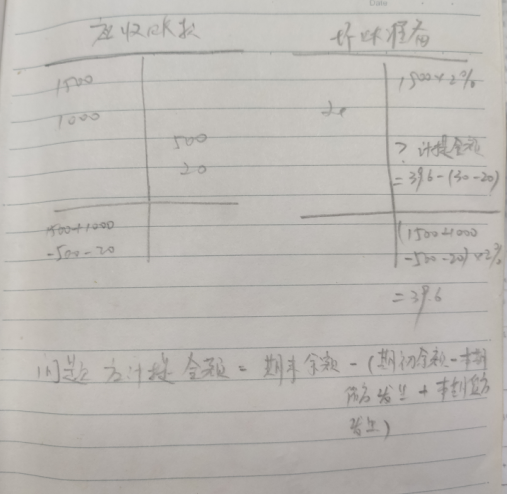 应收账款
坏账准备
1500
1500×2%
1000
20
500
? 计提金额
20
=39.6-(30-20)
1500+1000
-500-20
(1500+1000
-500-20)×2%
=39.6
问题: 计提金额 = 期末余额 - (期初余额-本期
发生 + 本期
发生)